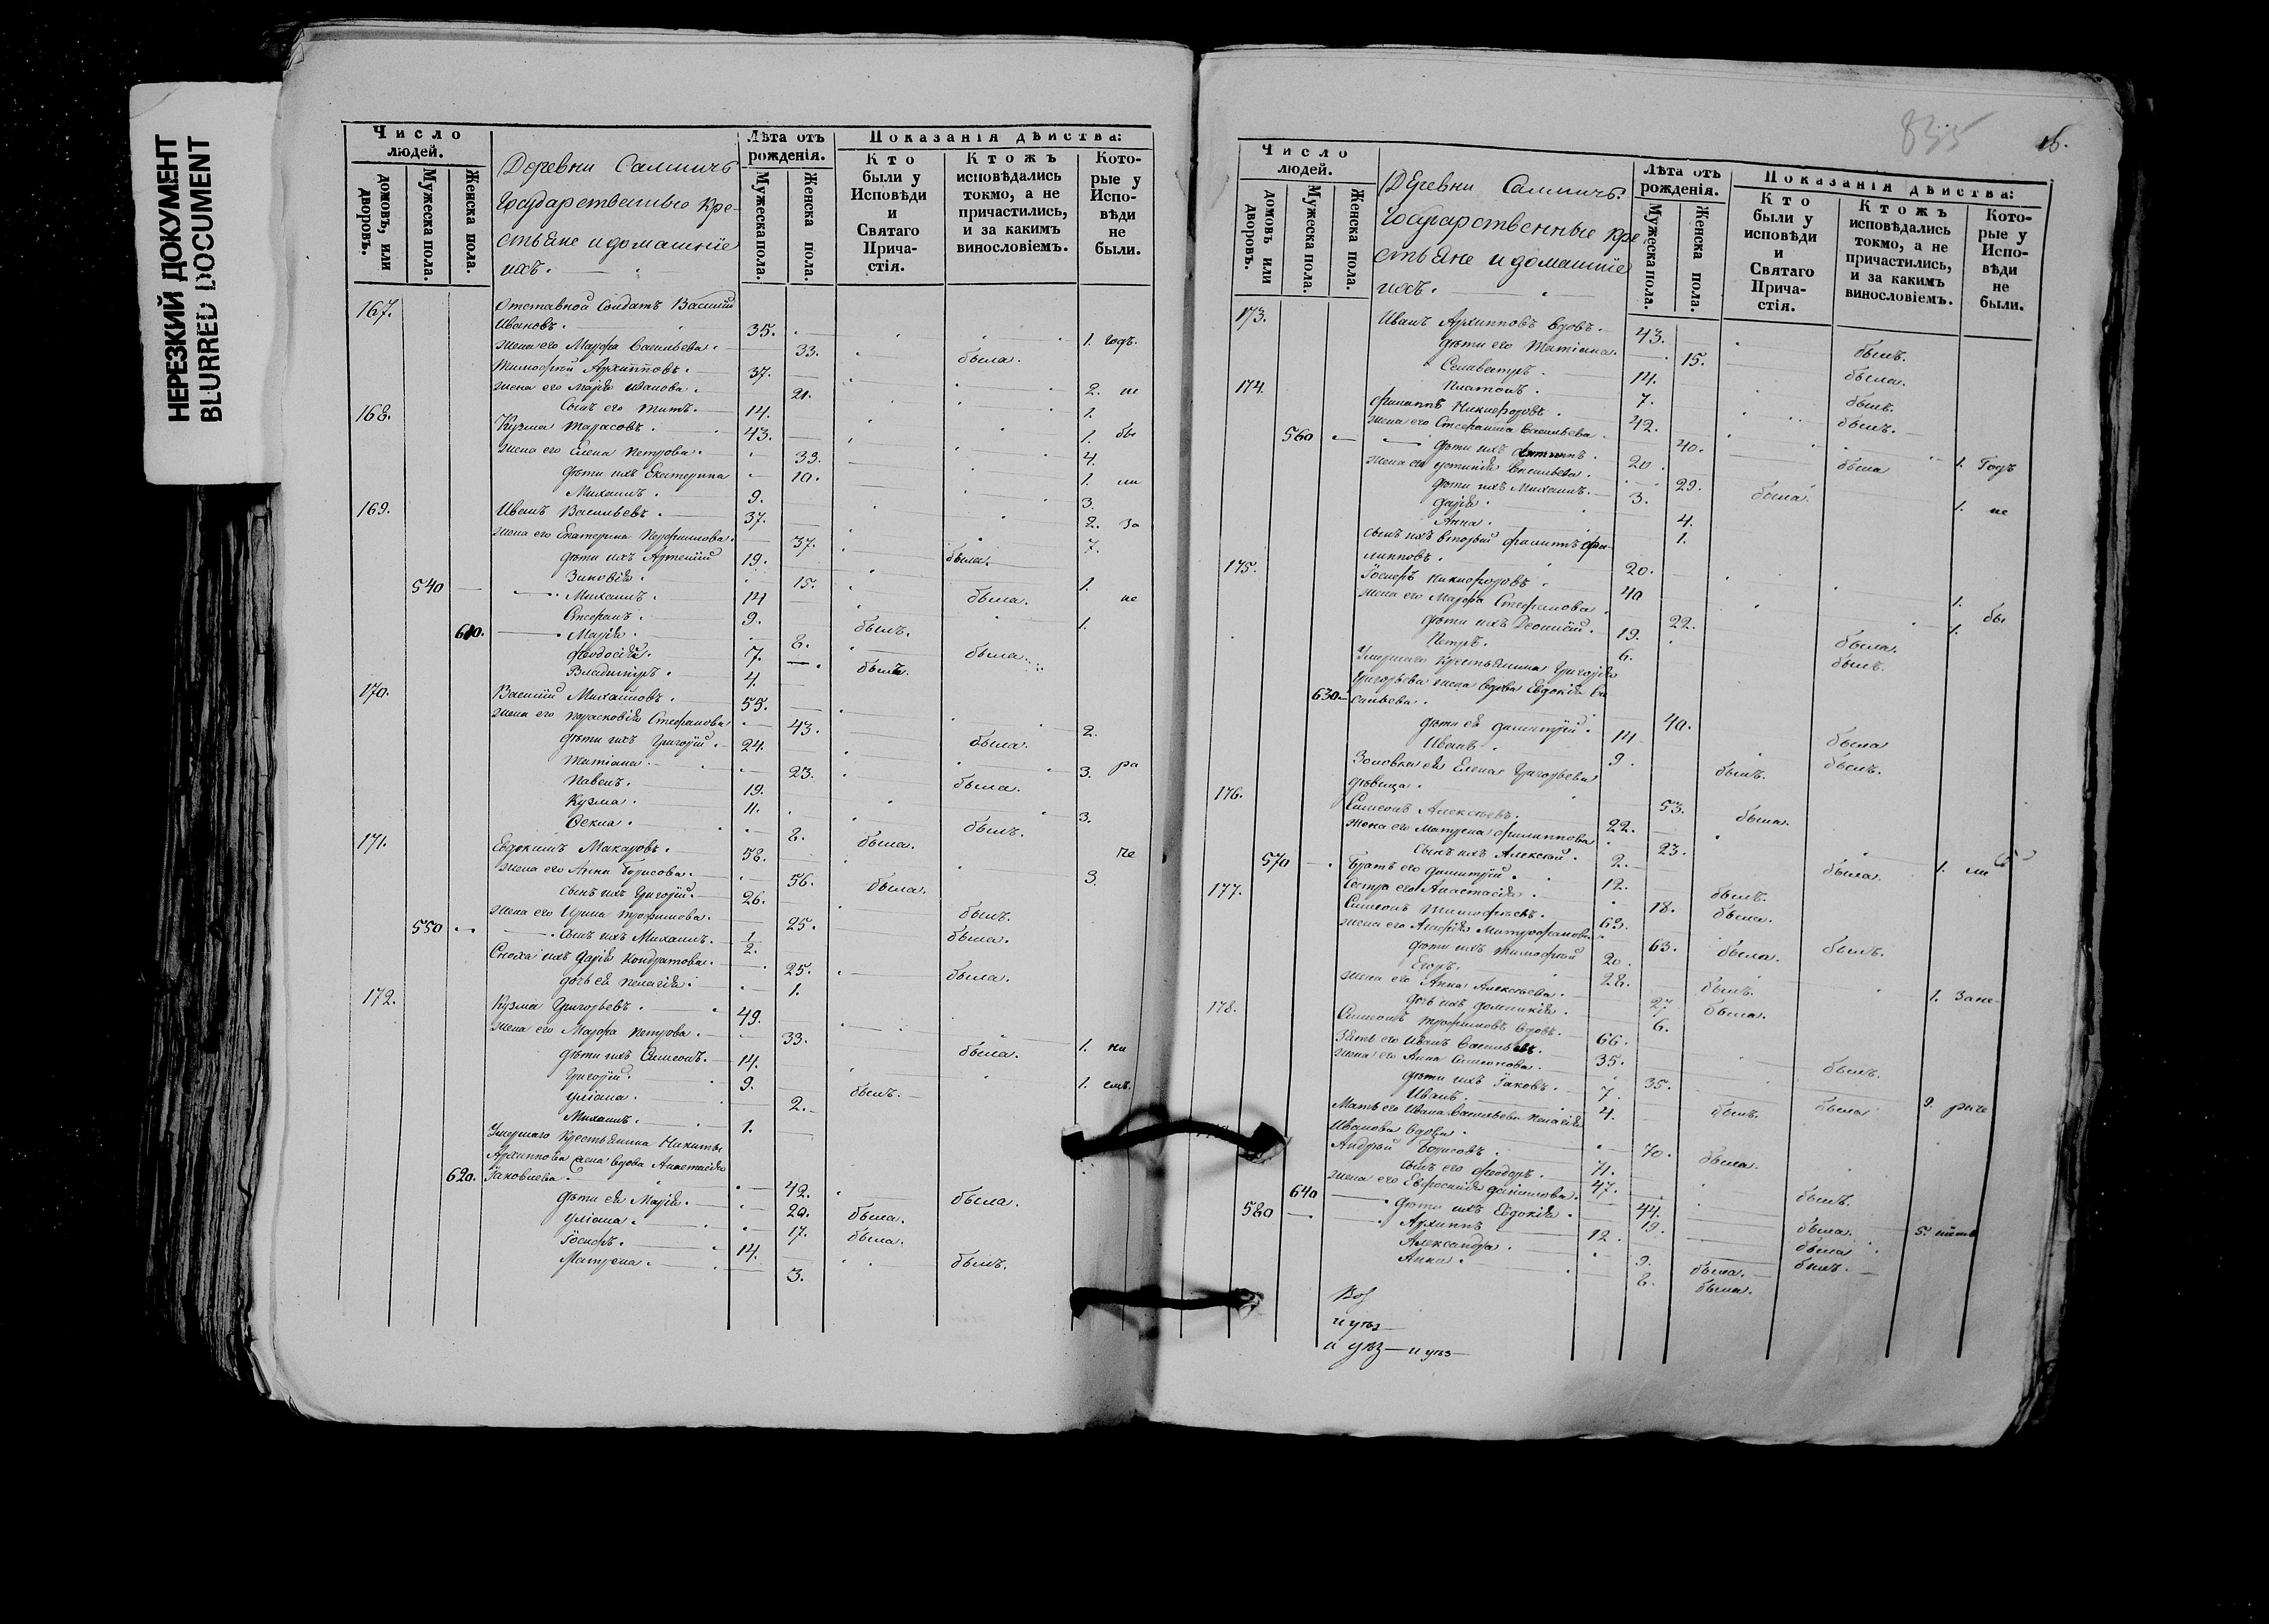 НЕРЕЗКИЙ ДОКУМЕНТ
BLURRED DOCUMENT
Число людей.
домовъ, или дворовъ.
Мужеска пола.
Женска пола.
Деревни Саминичъ
Государственные кре-
стьяне и домашніе
ихъ.
Лѣта отъ рожденія.
Мужеска пола.
Женска пола.
Показанія дѣйства:
Кто были у Исповѣди и Святаго Прича-стія.
Ктожъ исповѣдались токмо, а не причастились, и за какимъ винословіемъ.
Кото-рые у Испо-вѣди не были.
167. Отставной Солдатъ Василій
Ивановъ. 35. 1. годъ.
жена его Марфа Васильева. 33. была.
Тимофей Архипповъ. 37.
жена его Марія Иванова. 21. 2. не
Сынъ его Титъ. 14. 1.
168. Кузма Тарасовъ. 43. 1. бы
жена его Елена Петрова. 33. 4.
дѣти ихъ Екатерина 10. 1. ли
Михаилъ. 9. 3.
169. Иванъ Васильевъ. 37. 2. За
жена его Екатерина 37. 7.
дѣти ихъ Артемій 19. была.
Зиновія. 15. 1.
540 Михаилъ. 14 была. не
Стефанъ. 9. 1.
610. Марія. 8. былъ.
Феодосія. 7. была.
Владиміръ. 4. былъ.
170. Василій Михайловъ. 55.
жена его Парасковія Стефанова 43. 2.
дѣти ихъ Григорій. 24. была.
Татіана. 23. 3. ра
Павелъ. 19. была.
Кузма. 11. 3.
Ѳекла. 8. была. былъ.
171. Евдокимъ Макаровъ. 58. Че
жена его Анна Борисова. 56. была. 3.
сынъ ихъ Григорій. 26.
жена его Ирина Трофимова. 25. былъ.
550 сынъ ихъ Михаилъ. 1/2. была.
Сноха ихъ Дарія Кондратова. 25. была.
дочь ея Пелагія. 1.
172. Кузма Григорьевъ. 49.
жена его Марфа Петрова. 33.
дѣти ихъ Симеонъ. 14. была. 1. ни
Григорій. 9. былъ. 1. емъ.
Уліана. 2.
Михаилъ. 1.
Умершаго Крестьянина Никиты
Архиппова жена вдова Анастасія
620. Іаковлева. 42.
дѣти ея Марія. 20. была. была.
Уліана. 17. была.
Іосифъ. 14.
Матрена. 3. былъ.
835
Число людей.
домовъ или дворовъ.
Мужеска пола.
Женска пола.
Деревни Саминичъ.
Государственные кре
стьяне и домашніе
ихъ.
Лѣта отъ рожденія.
Мужеска пола.
Женска пола.
Показанія дѣйства:
Кто были у исповѣди и Святаго Прича-стія.
Ктожъ исповѣдались токмо, а не причастились, и за какимъ винословіемъ.
Кото-рые у Испо-вѣди не были.
173. Иванъ Архипповъ вдовъ. 43.
дѣти его Татіана. 15. былъ.
Селивестръ. 14. была.
Платонъ. 7. былъ.
174. Филиппъ Никифоровъ. 42. былъ.
жена его Стефанида Васильева 40.
560 дѣти ихъ 20. была 1. Годъ
жена его Устинія Васильева. 29. была.
дѣти ихъ Михаилъ. 3. 1. не
Дарія. 4.
Анна. 1.
сынъ ихъ вторый Филиппъ Фи-
липповъ. 20.
175. Іосифъ Никифоровъ. 40 1.
жена его Марфа Стефанова 22. бы
дѣти ихъ Деонисій. 19. 1.
Петръ. 6. была.
Умершаго Крестьянина Григорія былъ.
Григорьева жена вдова Евдокія Ва
630. сильева. 40.
дѣти ея Димитрій. 14 была
Иванъ. 9. былъ.
Золовка ея Елена Григорьева былъ.
дѣвица. 53. была.
176. Симеонъ Алексѣевъ. 22.
жена его Матрена Филиппова 23.
сынъ ихъ Алексій. 2. 1. ли
570 Братъ его Димитрій. 12. была.
Сестра его Анастасія. 18. былъ.
177. Симеонъ Тимофѣевъ. 63. была.
жена его Агафія Митрофанова 63. была. былъ.
дѣти ихъ Тимофей 20.
Егоръ. 28. былъ.
жена его Анна Алексѣева. 27 была. 1. Зане
дочь ихъ Домникія. 6.
178. Симеонъ Трофимовъ вдовъ. 66.
Зять его Иванъ Васильевъ. 35. былъ.
жена его Анна Симеонова. 35.
дѣти ихъ Іаковъ. 7. былъ. была 9. раче
Иванъ. 4.
Мать его Ивана Васильева Пелагія
Иванова вдова. 70. была.
Андрей Борисовъ. 71.
сынъ его Феодоръ. 47. былъ.
640 жена его Евфросинія Данилова. 44.
580 дѣти ихъ Евдокія. 19. была. 5. ніемъ
Архиппъ 12. была
Александра. 9. была. былъ.
Анна. 8. была.